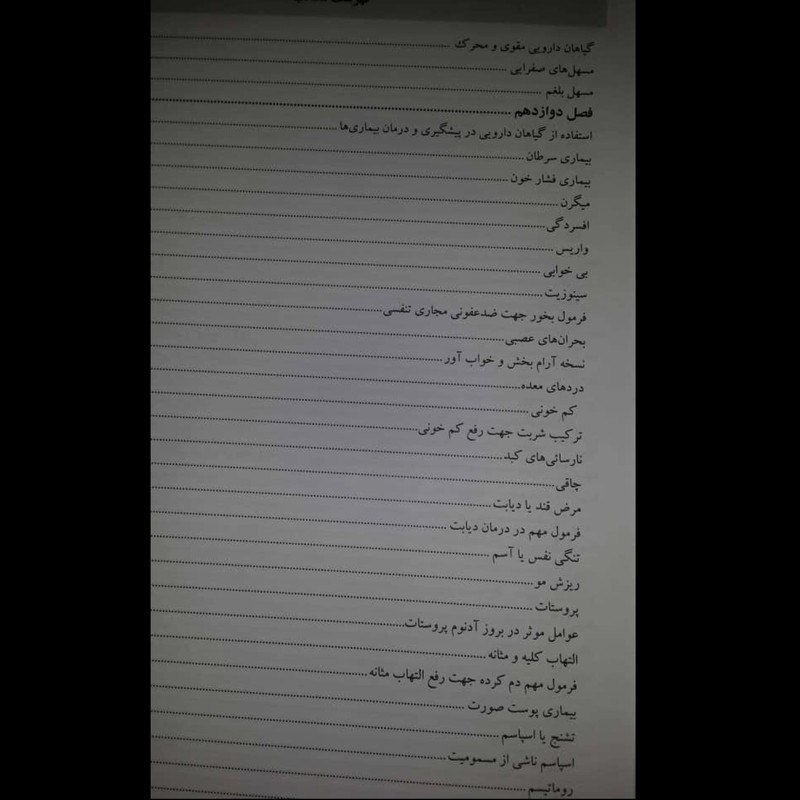 گیاهان دارویی مقوی و محرک
مسهل‌های صفرایی
مسهل بلغم
فصل دوازدهم
استفاده از گیاهان دارویی در پیشگیری و درمان بیماری‌ها
بیماری سرطان
بیماری فشار خون
میگرن
افسردگی
واریس
بی خوابی
سینوزیت
فرمول بخور جهت ضدعفونی مجاری تنفسی
بحران‌های عصبی
نسخه آرام بخش و خواب آور
دردهای معده
کم خونی
ترکیب شربت جهت رفع کم خونی
نارسائی‌های کبد
چاقی
مرض قند یا دیابت
فرمول مهم در درمان دیابت
تنگی نفس یا آسم
ریزش مو
پروستات
عوامل موثر در بروز آدنوم پروستات
التهاب کلیه و مثانه
فرمول مهم دم کرده جهت رفع التهاب مثانه
بیماری پوست صورت
تشنج یا اسپاسم
اسپاسم ناشی از مسمومیت
روماتیسم